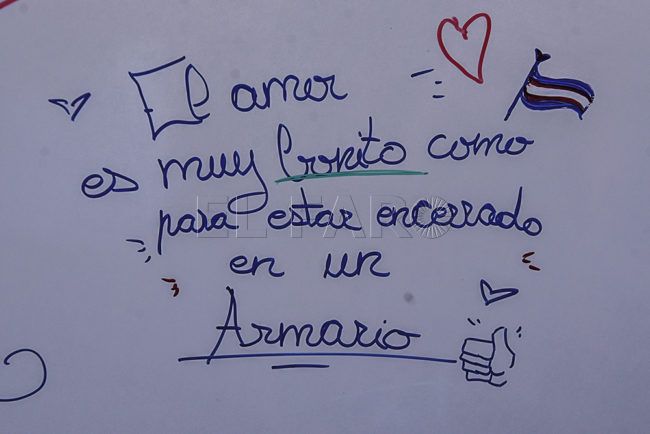 El amor
es muy bonito como
para estar encerrado
EL FARO
en un
Armario